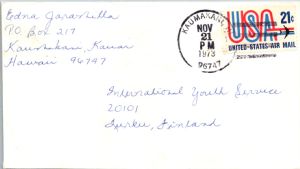 Edna
P.O. Box 217
Kaumakani, Kauai
Hawaii 96747
KAUMAKANI
NOV
21
PM
1973
96747
USA 21c
UNITED STATES AIR MAIL
International Youth Service
20101
Turku, Finland